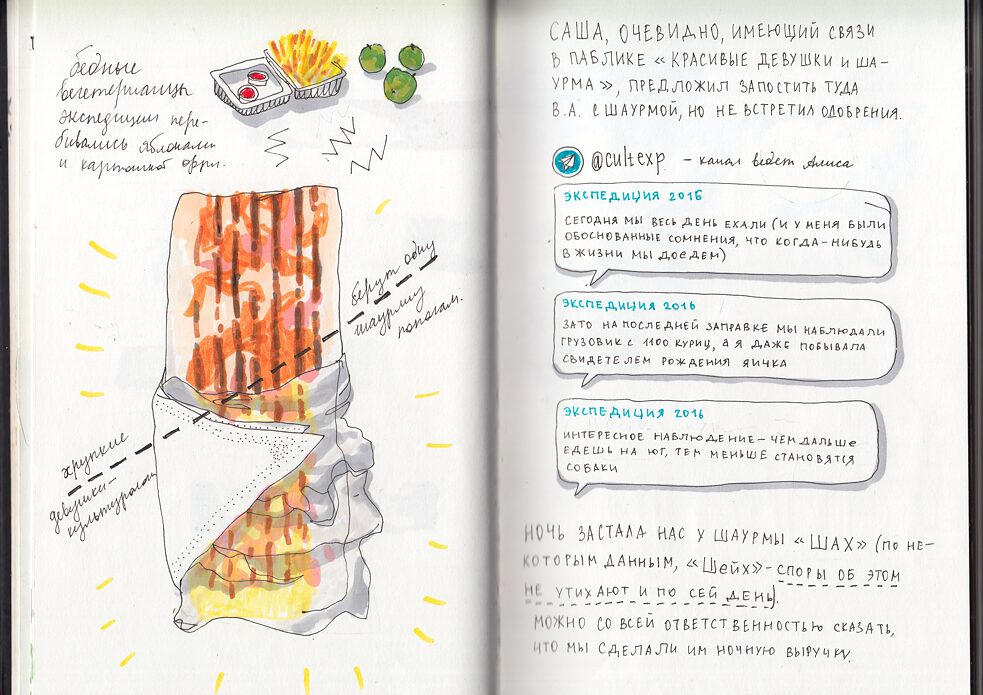 бедные
вегетерианцы
экспедиции пере-
бивались яблоками
и картошкой фри.
берут одну
шаурму
попалам.
хрупкие
девушки-
культурологи
САША, ОЧЕВИДНО, ИМЕЮЩИЙ СВЯЗИ
В ПАБЛИКЕ «КРАСИВЫЕ ДЕВУШКИ И ША-
УРМА», ПРЕДЛОЖИЛ ЗАПОСТИТЬ ТУДА
В.А. С ШАУРМОЙ, НО НЕ ВСТРЕТИЛ ОДОБРЕНИЯ.
@cultexp – канал ведет Алиса
ЭКСПЕДИЦИЯ 2016
СЕГОДНЯ МЫ ВЕСЬ ДЕНЬ ЕХАЛИ (И У МЕНЯ БЫЛИ
ОБОСНОВАННЫЕ СОМНЕНИЯ, ЧТО КОГДА-НИБУДЬ
В ЖИЗНИ МЫ ДОЕДЕМ)
ЭКСПЕДИЦИЯ 2016
ЗАТО НА ПОСЛЕДНЕЙ ЗАПРАВКЕ МЫ НАБЛЮДАЛИ
ГРУЗОВИК С 1100 КУРИЦ, А Я ДАЖЕ ПОБЫВАЛА
СВИДЕТЕЛЕМ РОЖДЕНИЯ ЯИЧКА
ЭКСПЕДИЦИЯ 2016
ИНТЕРЕСНОЕ НАБЛЮДЕНИЕ – ЧЕМ ДАЛЬШЕ
ЕДЕШЬ НА ЮГ, ТЕМ МЕНЬШЕ СТАНОВЯТСЯ
СОБАКИ
НОЧЬ ЗАСТАЛА НАС У ШАУРМЫ «ШАХ» (ПО НЕ-
КОТОРЫМ ДАННЫМ, «ШЕЙХ» – СПОРЫ ОБ ЭТОМ
НЕ УТИХАЮТ И ПО СЕЙ ДЕНЬ).
МОЖНО СО ВСЕЙ ОТВЕТСТВЕННОСТЬЮ СКАЗАТЬ,
ЧТО МЫ СДЕЛАЛИ ИМ НОЧНУЮ ВЫРУЧКУ.